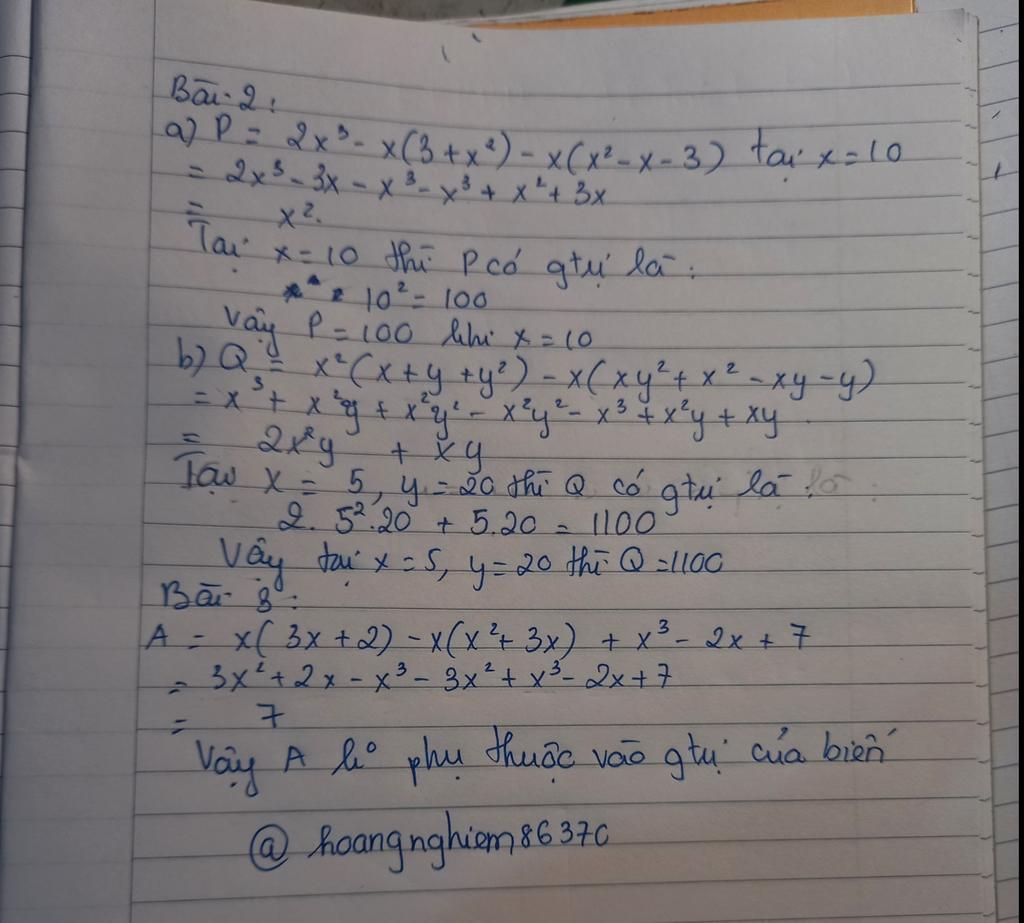 Bài 2:
a) P = 2x³ - x(3 + x²) - x(x² - x - 3) tại x = 10
= 2x³ - 3x - x³ - x³ + x² + 3x
= x².
Tại x = 10 thì P có gtrị là:
10² = 100
Vậy P = 100 khi x = 10
b) Q = x²(x + y + y²) - x(xy² + x² - xy - y)
= x³ + x²y + x²y² - x²y² - x³ + x²y + xy
= 2x²y + xy
Tại x = 5, y = 20 thì Q có gtrị là :
2. 5².20 + 5.20 = 1100
Vậy tại x = 5, y = 20 thì Q = 1100
Bài 3:
A = x(3x + 2) - x(x² + 3x) + x³ - 2x + 7
= 3x² + 2x - x³ - 3x² + x³ - 2x + 7
= 7
Vậy A k° phụ thuộc vào gtrị của biến
@ hoangnghiem86370